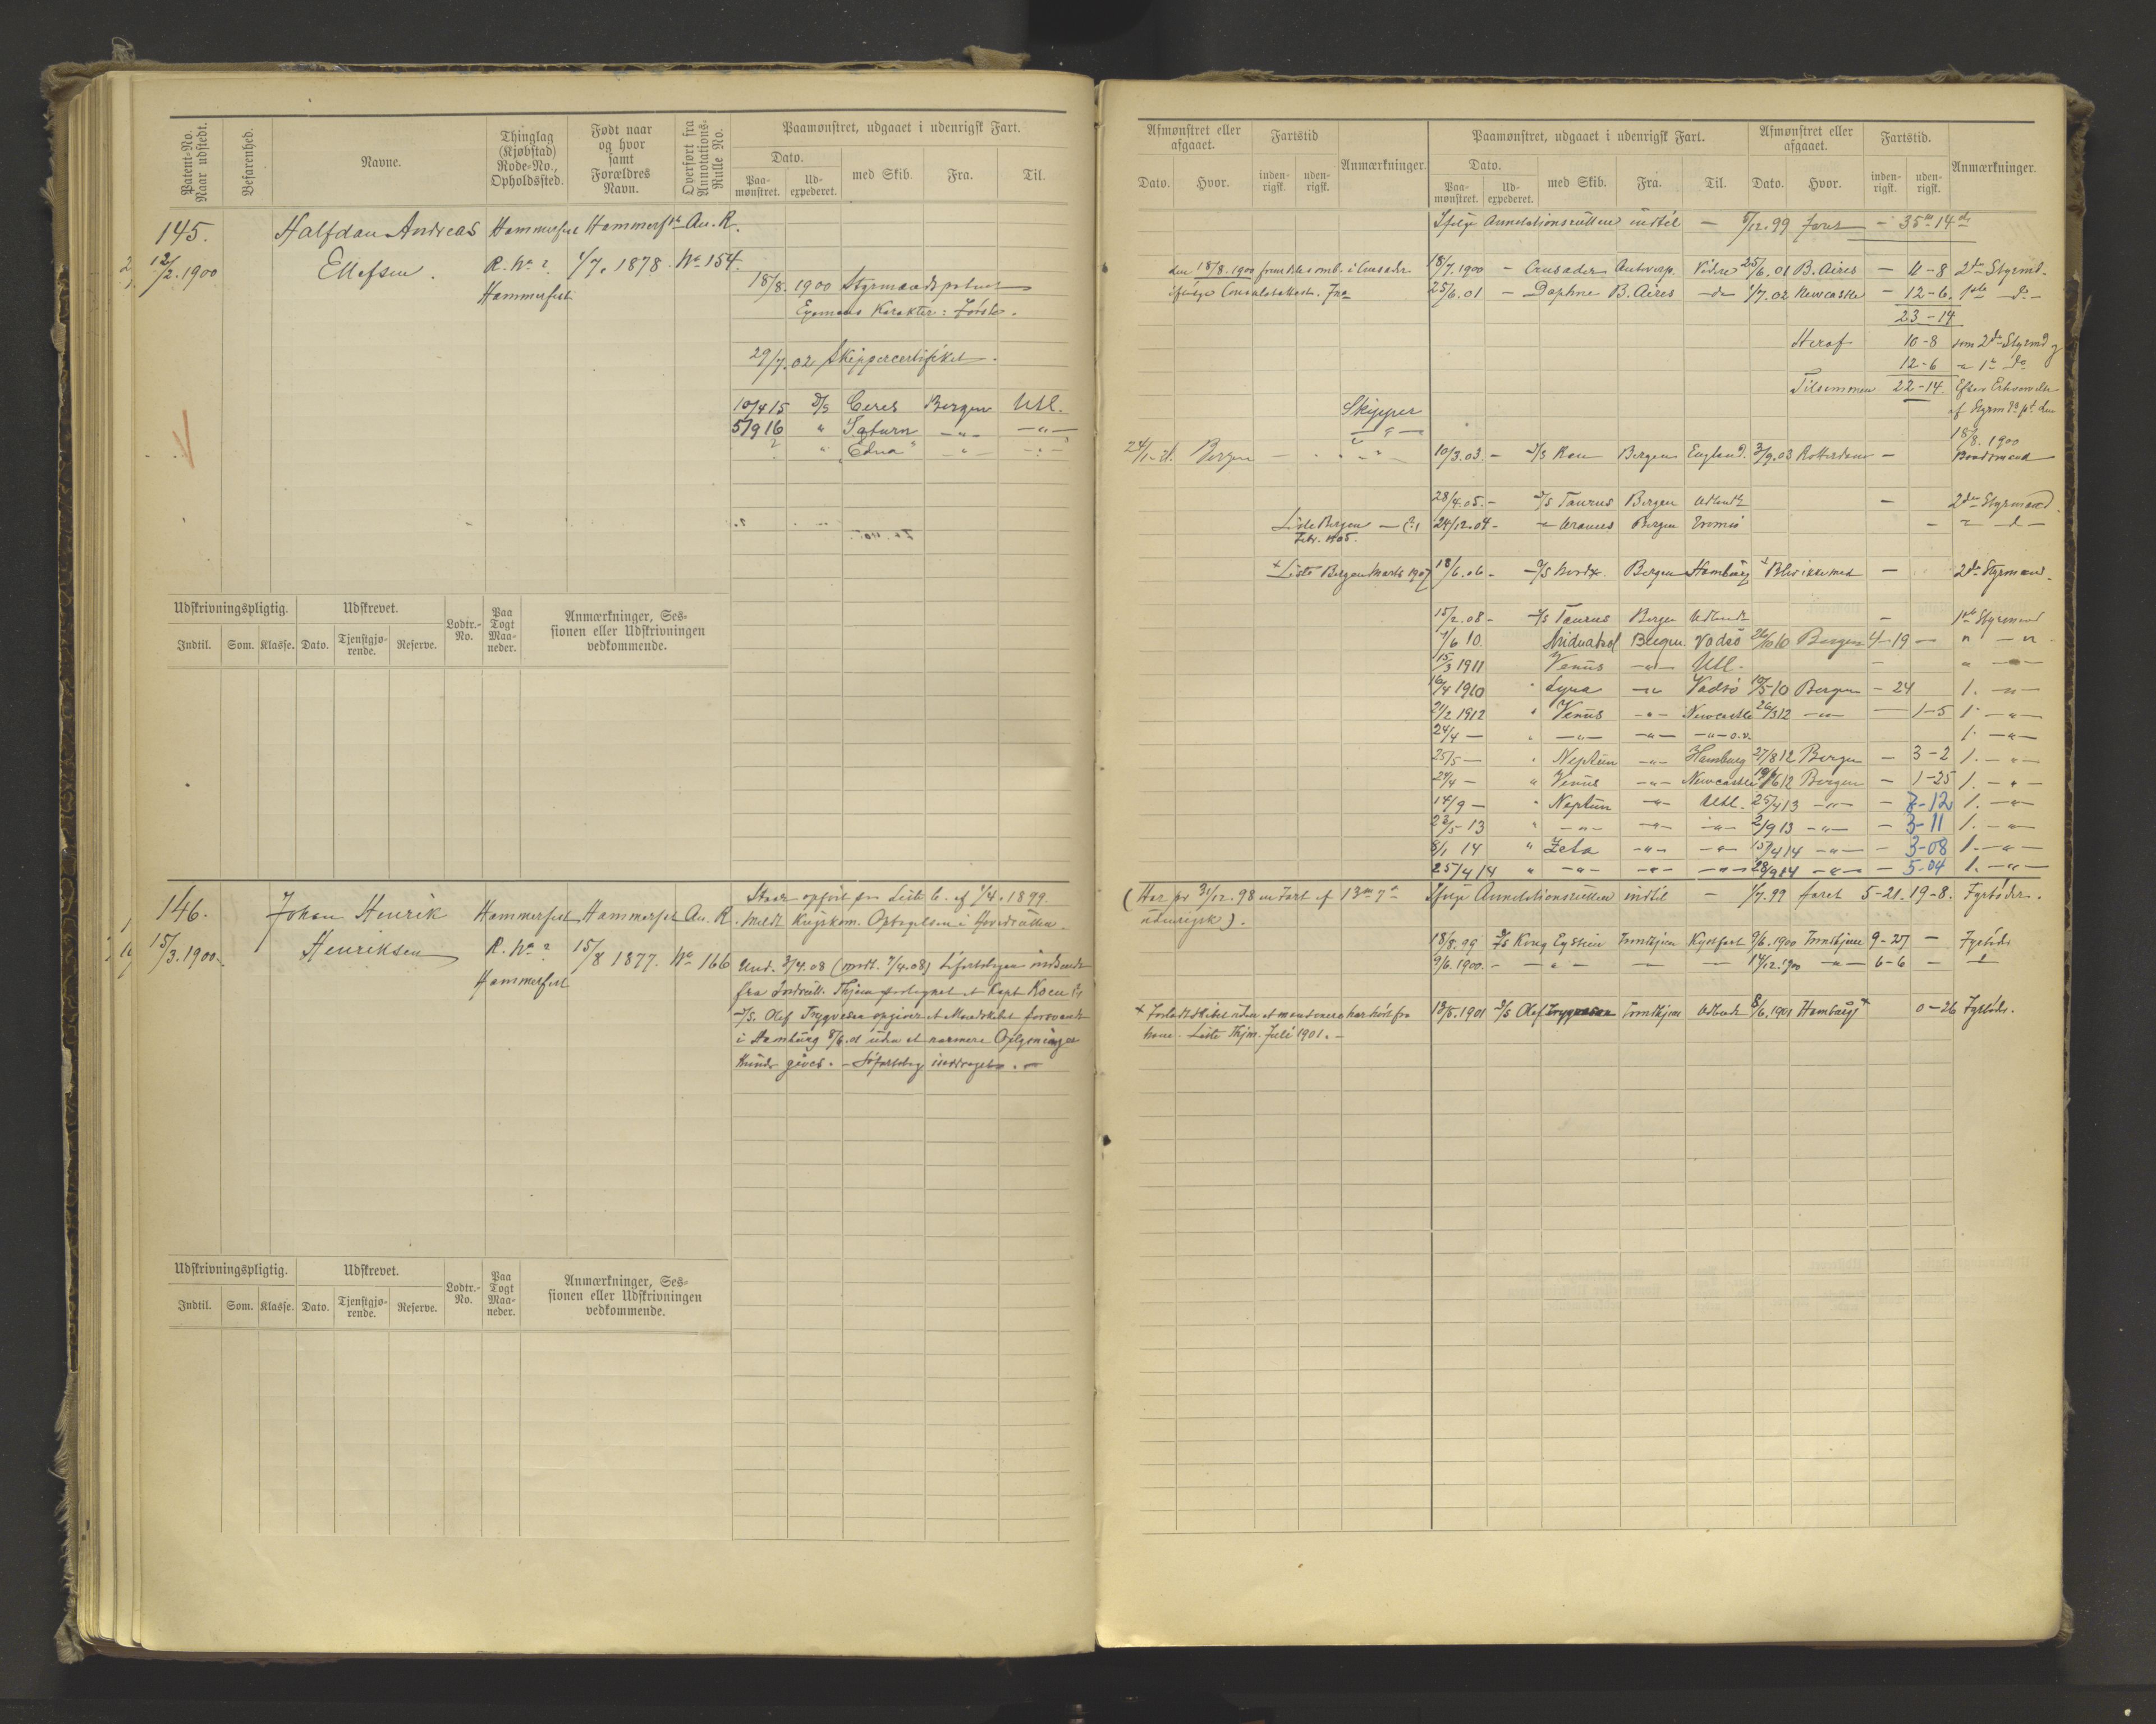 Patent-No. Naar udstedt.
Befarenhed.
Navne.
Thinglag (Kjøbstad) Rode-No., Opholdssted.
Født naar og hvor samt Forældres Navn.
Overført fra Annotations-Rulle No.
Paamønstret, udgaaet i udenrigsk Fart.
Dato.
Paa-mønstret.
Ud-expederet.
med Skib.
Fra.
Til.
145.
12/2. 1900
Halfdan Andreas
Ellefsen.
Hammerfest
R. No ?
Hammerfest
Hammerfest
1/7. 1878.
An. R.
No 154.
18/8. 1900 Styrmandspatent
Examens Karakter: Første.
29/7. 02 Skippercertifikat.
10/4 15 D/S Ceres Bergen Utl.
5/9 16 " Saturn -"- -"-
? " "Edna" -"- -"-
Udskrivningspligtig.
Udskrevet.
Lodtr.-No.
Paa Togt Maa-neder.
Anmærkninger, Ses-sionen eller Udskrivningen vedkommende.
Indtil.
Som.
Klasse.
Dato.
Tjenstgjø-rende.
Reserve.
146.
15/3. 1900.
Johan Henrik
Henriksen
Hammerfest
R. No ?
Hammerfest
Hammerfest
15/8 1877.
An. R.
No 166
Staar opført fra Liste C. af 1/4. 1899.
Meldt Krigskom. Optagelsen i Hovedrullen.
Und. 3/4. 08 (modt. 7/4. 08) Søfartsbogen indsendt
fra Indrull. Thjem
D/S. Olaf Trygveson opgiver at Mandskabet forsvandt
i Hamburg 8/6. 01 uden at nærmere Oplysninger
kunde gives. - Søfartsbog inddraget. -
Udskrivningspligtig.
Udskrevet.
Lodtr.-No.
Paa Togt Maa-neder.
Anmærkninger, Ses-sionen eller Udskrivningen vedkommende.
Indtil.
Som.
Klasse.
Dato.
Tjenstgjø-rende.
Reserve.
Afmønstret eller afgaaet.
Fartstid
Anmærkninger.
Paamønstret, udgaaet i udenrigsk Fart.
Afmønstret eller afgaaet.
Fartstid.
Anmærkninger.
Dato.
Hvor.
inden-rigsk.
uden-rigsk.
Dato.
Paa-mønstret.
Ud-expederet.
med Skib.
Fra.
Til.
Dato.
Hvor.
inden-rigsk.
uden-rigsk.
Ifølge Annotationsrullen indtil - 5/12. 99 faret - 35 m 14 d
18/7. 1900 - Crusader Antwerp. Videre 25/6. 01 B. Aires - 10-8 2den Styrmd.
ifølge Consulatattest.
25/6. 01 - Daphne B. Aires -do 1/7. 02 Newcastle - 12-6. 1ste -do-
23-14
Heraf 10-8 som 2den Styrmd og
12-6 " 1ste do
Tilsammen 22-14. Efter Erhvervelse
af Styrmds pt. den
18/8. 1900
Skipper
24/1-21. Bergen
10/3. 03. - D/S Ran Bergen England. 3/9. 03 Rotterdam - Baadsmand
28/4. 05. - D/S Taurus Bergen Udlandet - 2den Styrmand.
Liste Bergen
Febr. 1905.
24/12. 04 - " Uranus Bergen Tromsø
+ Liste Bergen Marts 1907
18/6. 06 - Bergen Hamburg + Blev ikke med - 2den Styrmand.
15/2. 08 - D/S Taurus Bergen Udlandet - 1ste Styrmand
7/6 10 Midnatsol Bergen. Vadsø 26/10 10 Bergen 4-19 - " - "
15/3 1911 Venus -"- Utl. - " -"-
16/4 1910 " Lyra -"- Vadsø 10/5 10 Bergen - 24 1. -"-
21/2 1912 " Venus -"- Newcastle 26/3 12 -"- - 1-5 1. -"-
24/4 - " -"- -"- -"- o.v. 1. -"-
25/5 - " Neptun -"- Hamburg 27/8 12 Bergen - 3-2 1. -"-
24/4 - " Venus -"- Newcastle 19/6 12 Bergen - 1-25 1. -"-
14/9 - " Neptun -"- Utl. 25/4 13 -"- - 7-12 1. -"-
23/5-13 " -"- -"- -"- 2/9 13 -"- - 3-11 1. -"-
8/1 14 " Zeta -"- -"- 15/4 14 -"- - 3-08 1. -"-
25/4 14 " -"- -"- -"- 28/9 14 -"- - 5-04 1. -"-
(Har pr 31/12. 98 en Fart af 13 m 7 d
udenrigsk).
Ifølge Annotationsrullen indtil - 1/7. 99 faret 5-21. 19-8. Fyrbøder.
18/8. 99 D/S Kong Eystein Trondhjem Kysfart 9/6. 1900 Trondhjem 9-27 - Fyrbøder
9/6. 1900. - -"- - - 14/12. 1900 -"- 6-6 -
+ Forladt Skibet uden at man senere har hørt fra
ham. Liste Thjm. Juli 1901. -
13/5. 1901 D/S Olaf Trygvason Trondhjem Udlandet 8/6. 1901 Hamburg + 0-26 Fyrbøder.